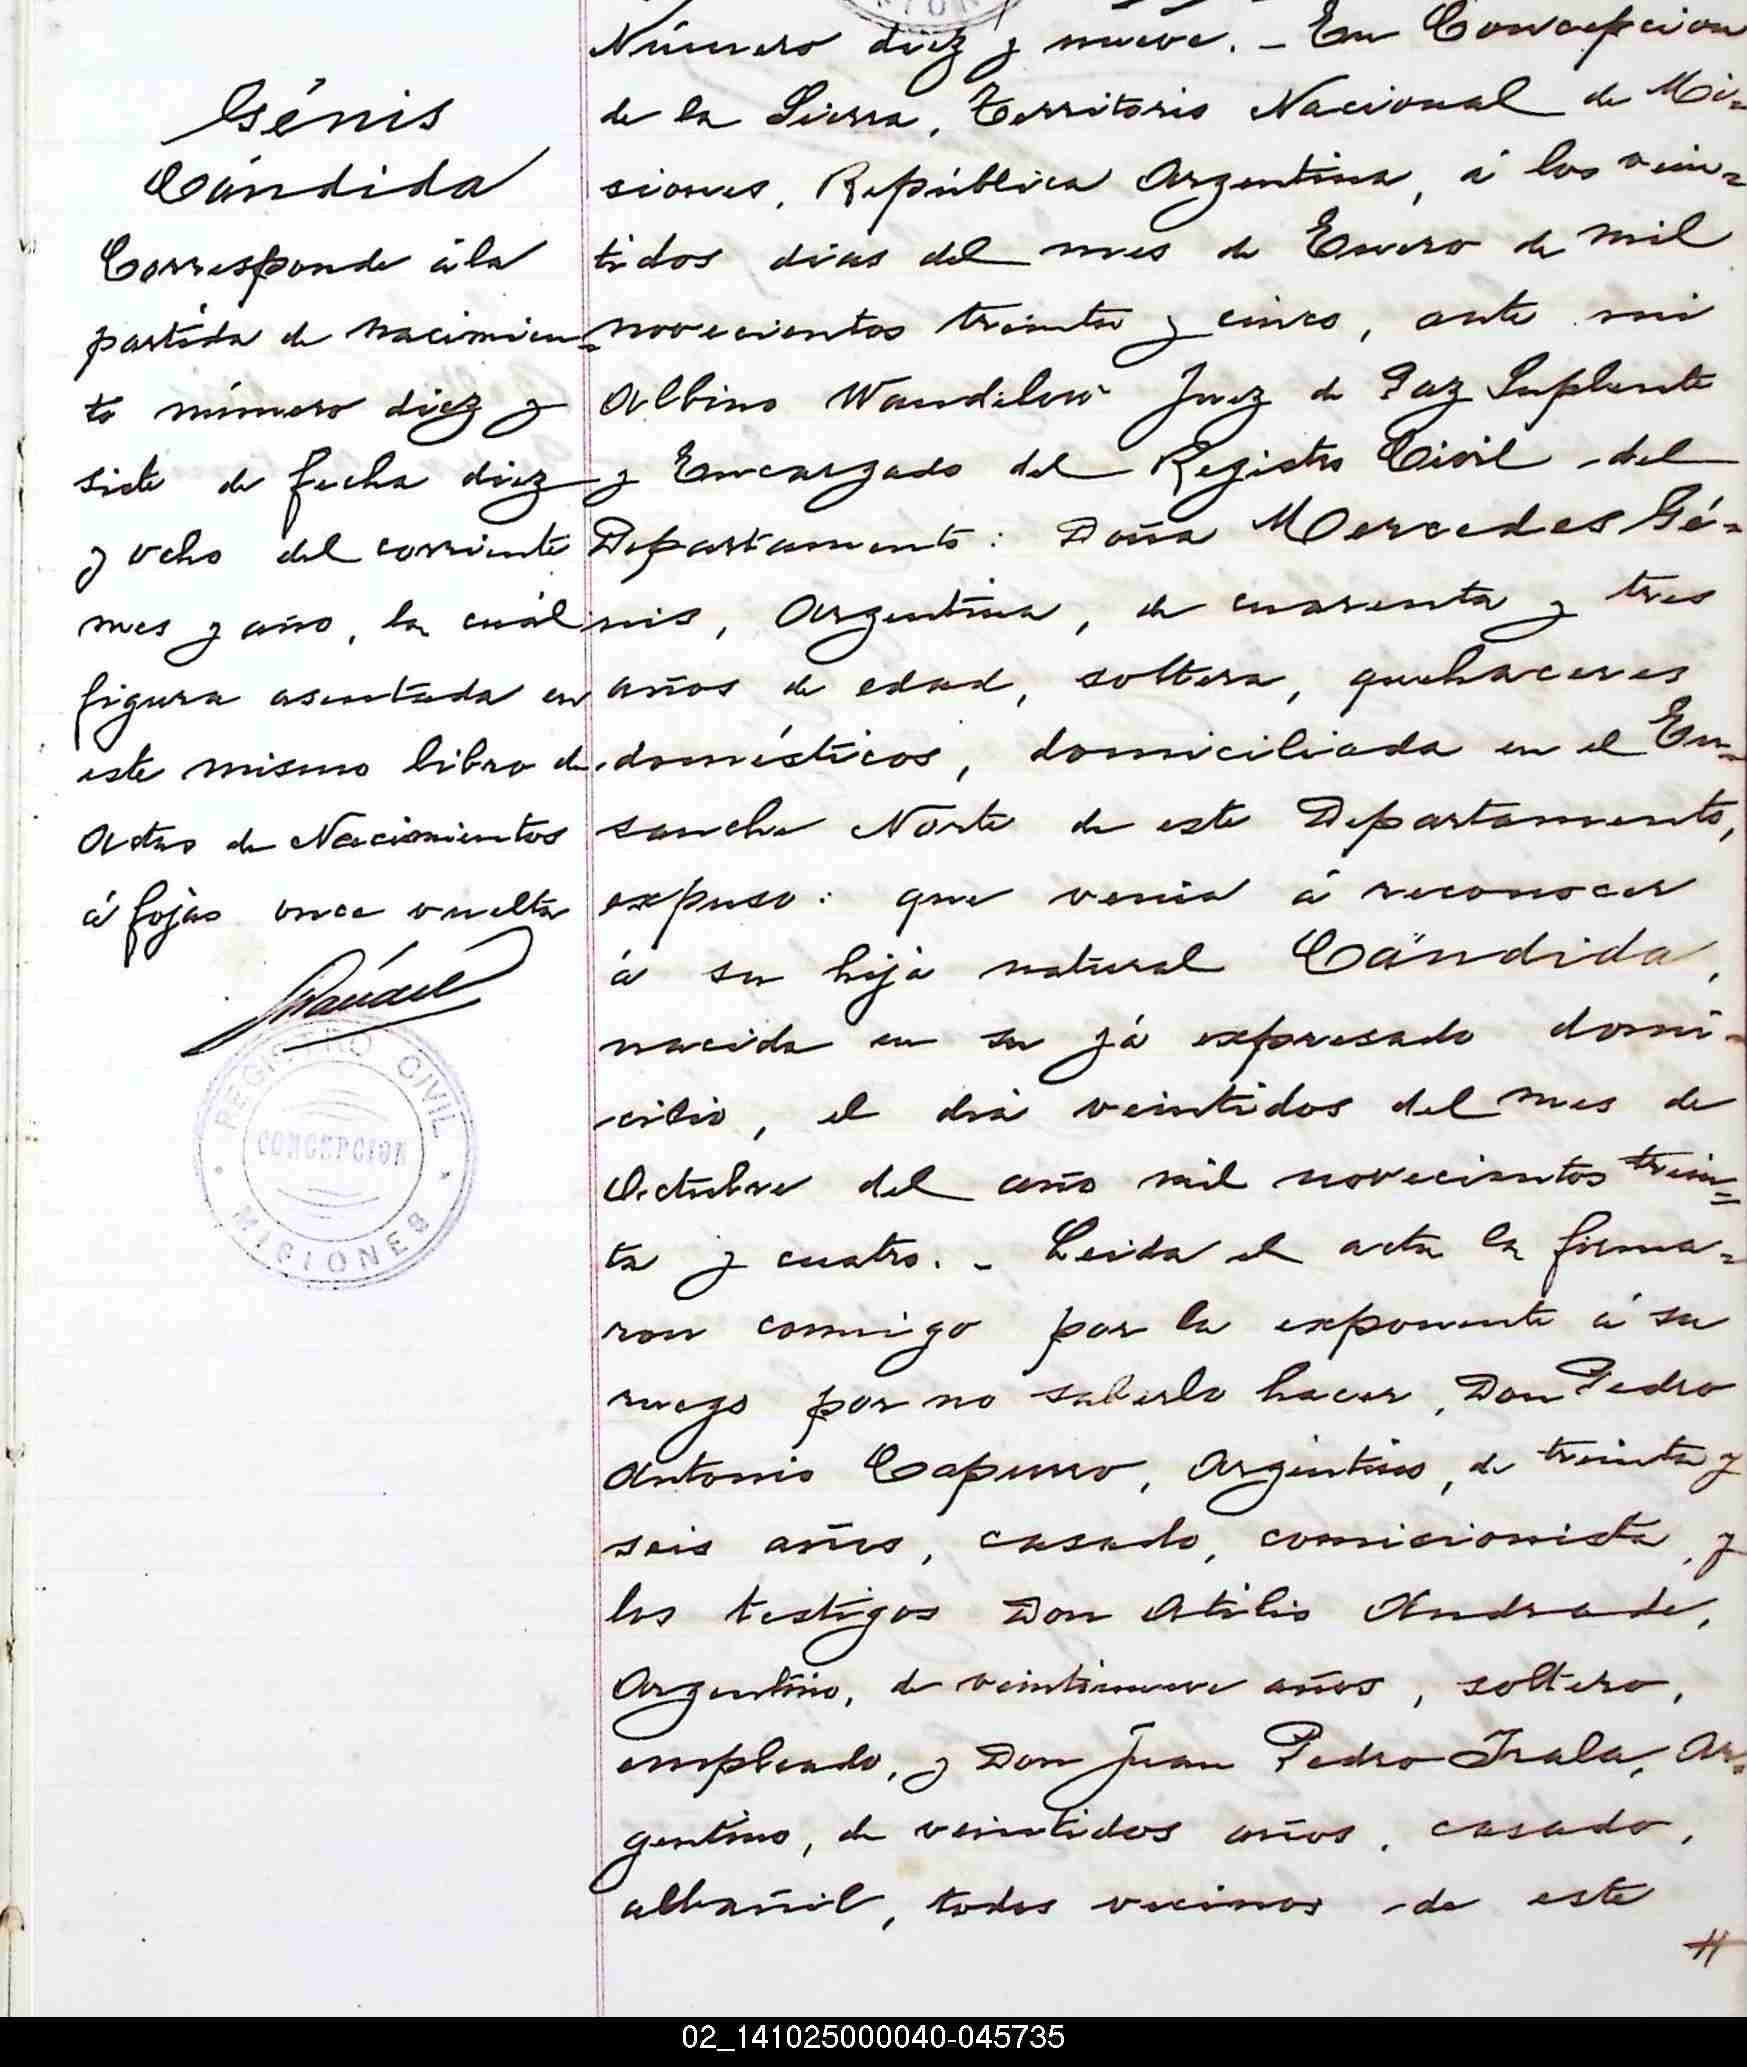 Génis
Cándida
Corresponde á la
partida de nacimien=
to número diez y
siete de fecha diez
y ocho del corriente
mes y año, la cuál
figura asentada en
este mismo libro de
Actas de Nacimientos
á fojas once vuelta
REGISTRO CIVIL
CONCEPCION
MISIONES
Número diez y nueve. - En Concepcion
de la Sierra, Territorio Nacional de Mi=
siones, República Argentina, á los vein=
tidos dias del mes de Enero de mil
novecientos treinta y cinco, ante mi
Albino Juez de Paz Suplente
y Encargado del Registro Civil del
Departamento: Doña Mercedes Gé=
nis, Argentina, de cuarenta y tres
años de edad, soltera, quehaceres
domésticos, domiciliada en el En=
sanche Norte de este Departamento,
expuso: que venia á reconocer
á su hija natural Cándida,
nacida en su yá expresado domi=
cilio, el dia veintidos del mes de
Octubre del año mil novecientos trein=
ta y cuatro. - Leida el acta la firma=
ron conmigo por la exponente á su
ruego por no saberlo hacer, Don Pedro
Antonio Capurro, Argentino, de treinta y
seis años, casado, comicionista, y
los testigos Don Atilio Andrade,
Argentino, de veintinueve años, soltero,
empleado, y Don Juan Pedro Irala, Ar=
gentino, de veintidos años, casado,
albañil, todos vecinos de este
02_141025000040-045735